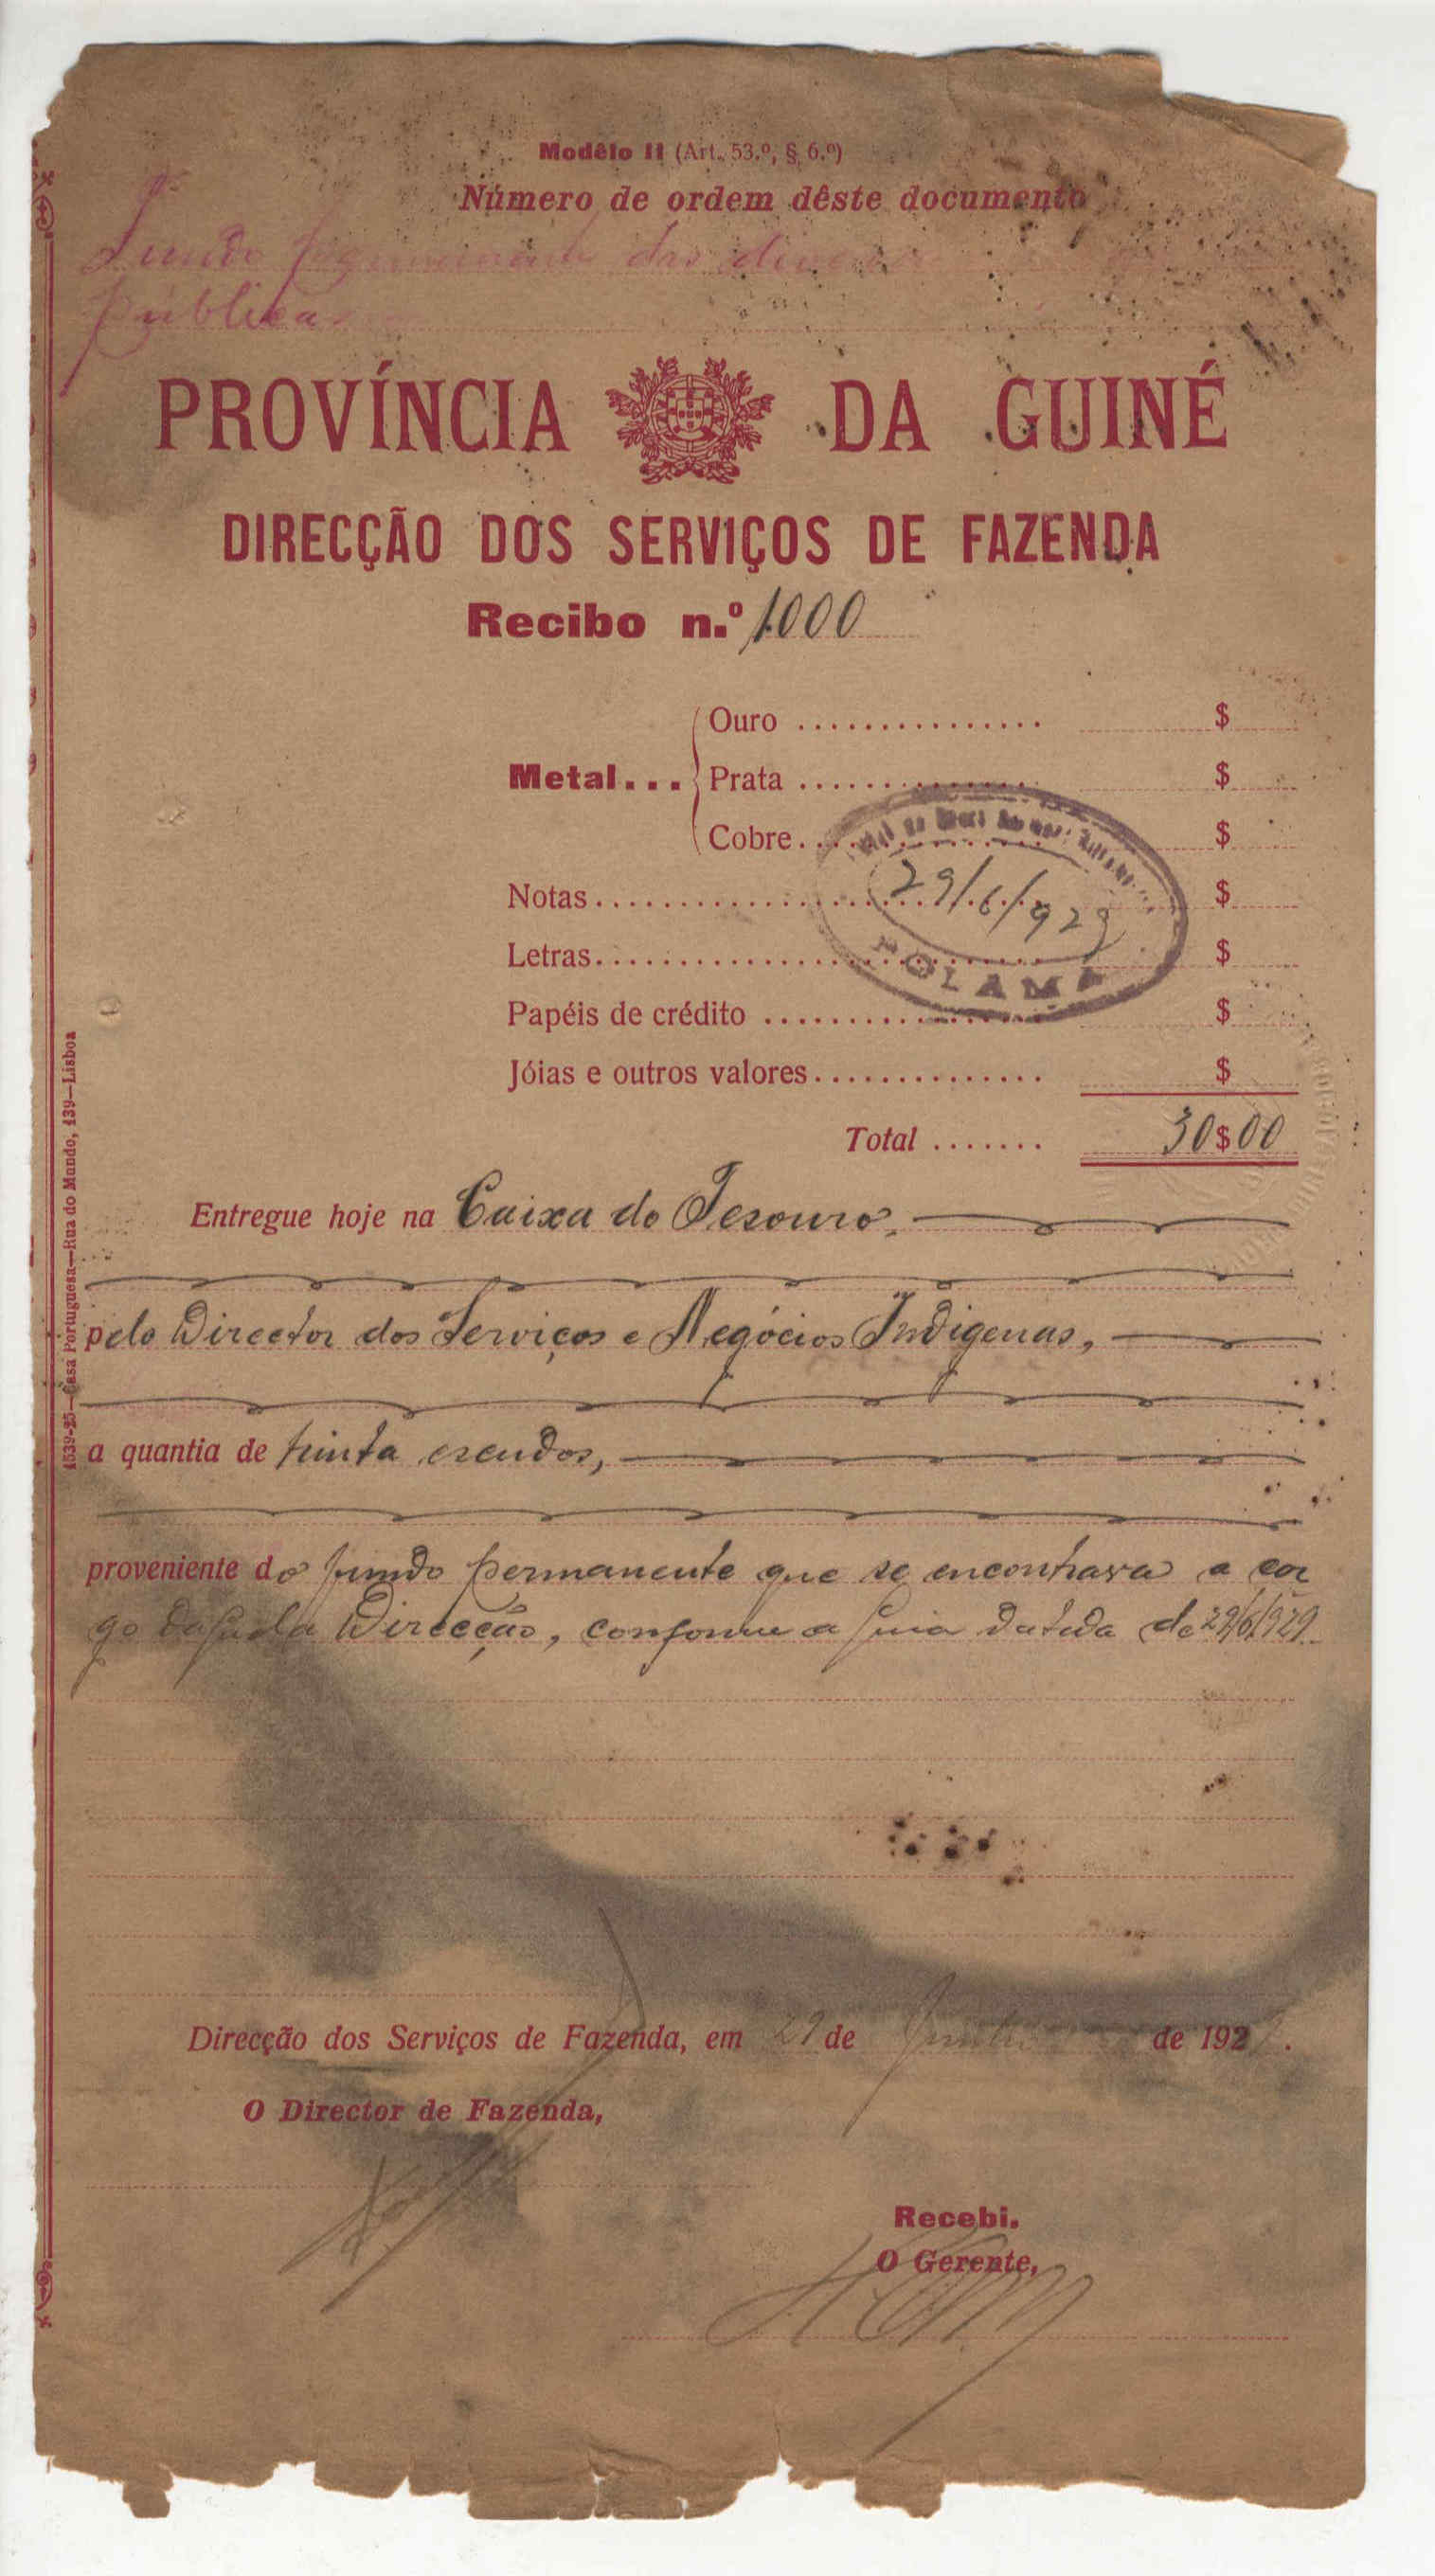 Modêlo 11 (Art. 53.º, § 6.º)
Número de ordem dêste documento
Fundo permanente das
públicas
PROVÍNCIA DA GUINÉ
DIRECÇÃO DOS SERVIÇOS DE FAZENDA
Recibo n.º 1000
Ouro ............... $
Metal... Prata ............... $
Cobre............... $
Notas............... $
Letras............... $
Papéis de crédito ............... $
Jóias e outros valores............... $
29/6/929
BOLAMA
Total ....... 30$00
Entregue hoje na Caixa do Tesouro,
pelo Director dos Serviços e Negócios Indigenas,
a quantia de trinta escudos,
proveniente do fundo permanente que se encontrava a car
go daquela Direcção, conforme a guia datada de 29/6/929.
Direcção dos Serviços de Fazenda, em 29 de Junho de 1929.
O Director de Fazenda,
Recebi.
O Gerente,
1539-25—Casa Portuguesa—Rua do Mundo, 139—Lisboa